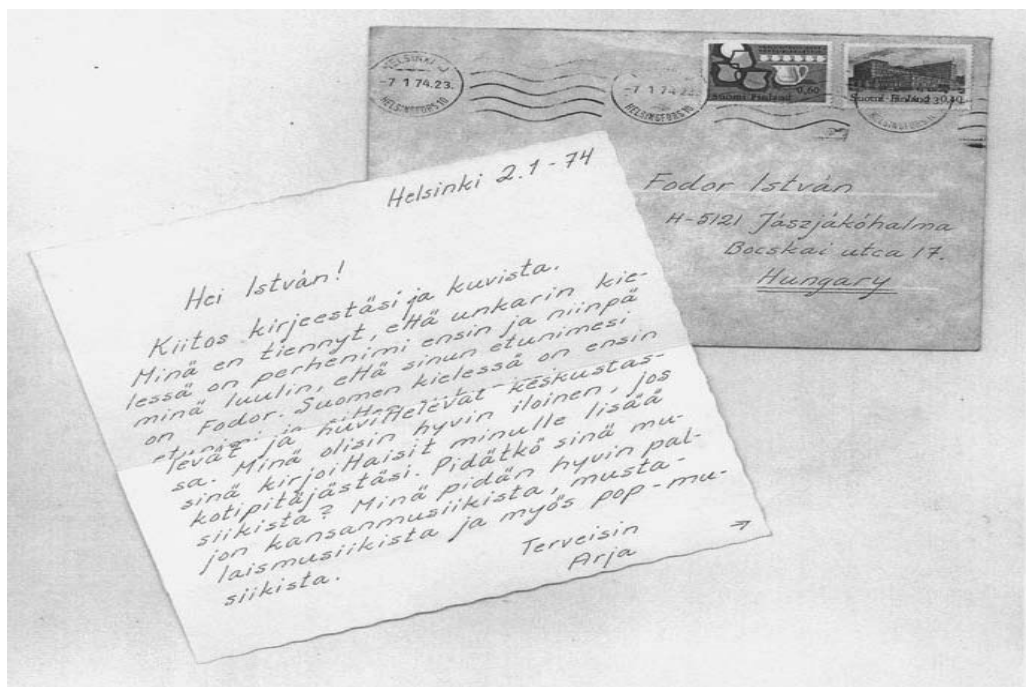 HELSINKI
-7. 1 74.23.
HELSINGFORS 10
-7. 1 74.23.
HELSINGFORS 10
0,60
Suomi Finland
Suomi-Finland 0,40
HELSINGFORS 10
Fodor István
H-5121 Jászjákóhalma
Bocskai utca 17.
Hungary
Helsinki 2.1-74
Hei István!
Kiitos kirjeestäsi ja kuvista.
Minä en tiennyt, että unkarin kie-
lessä on perhenimi ensin ja niinpä
minä luulin, että sinun etunimesi
on Fodor. Suomen kielessä on ensin
levät ja huvittelevat keskustas-
sa. Minä olisin hyvin iloinen, jos
sinä kirjoittaisit minulle lisää
kotipitäjästäsi. Pidätkö sinä mu-
siikista? Minä pidän hyvin pal-
jon kansanmusiikista, musta-
laismusiikista ja myös pop-mu-
siikista.
Terveisin
Arja